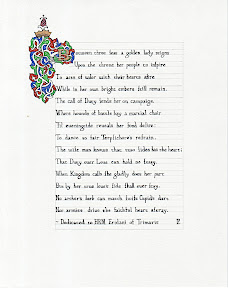 heaven three lies a golden lady reigns
Upon the throne her people to inspire
To arms of valor with their hearts afire
While in her own bright embers still remain.
The call of Duty sends her on campaign.
Where hounds of battle bay a martial choir
'Til eveningtide reveals her fond desire:
To dance so fair Terpsichore's refrain.
The wife man knows that two hides has the heart:
That Duty over Love can hold no sway.
When Kingdom calls she gladly does her part
But by her true love's side shall ever stay.
No archer's bark can match fool's Cupid's dart
Nor armies drive the faithful hearts astray.
- Dedicated to HRM of Trimaris